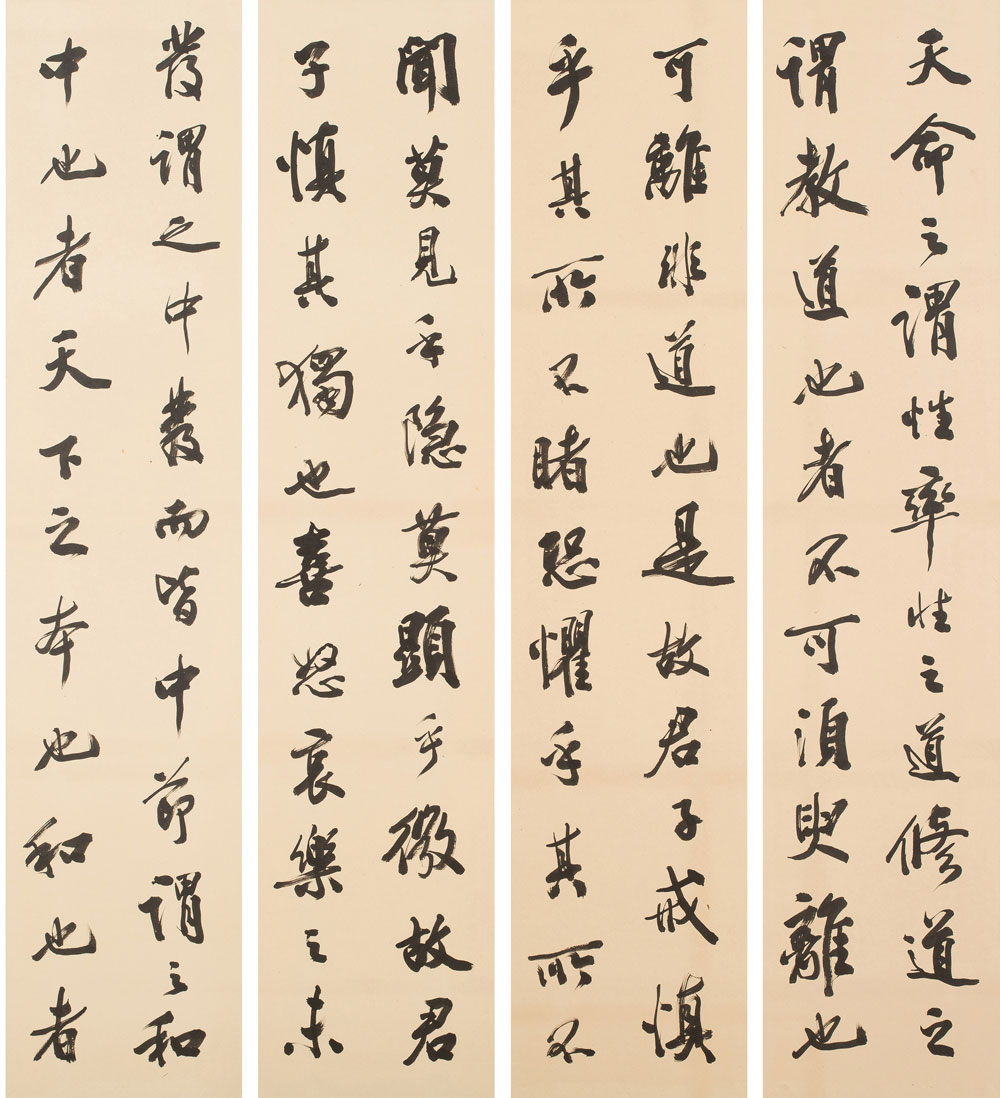 天命之謂性率性之道修道之
謂教道也者不可須臾離也
可離非道也是故君子戒慎
乎其所不睹恐懼乎其所不
聞莫見乎隐莫顯乎微故君
子慎其獨也喜怒哀樂之未
發謂之中發而皆中節謂之和
中也者天下之本也和也者